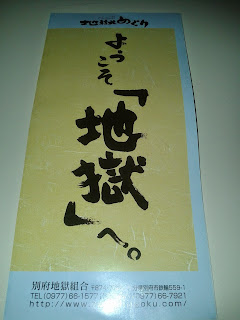 地獄めぐり
ようこそ
「地獄」へ。
別府地獄組合 559-1
TEL (0977)66-157 (0977)66-7921
http://www. oku.com/